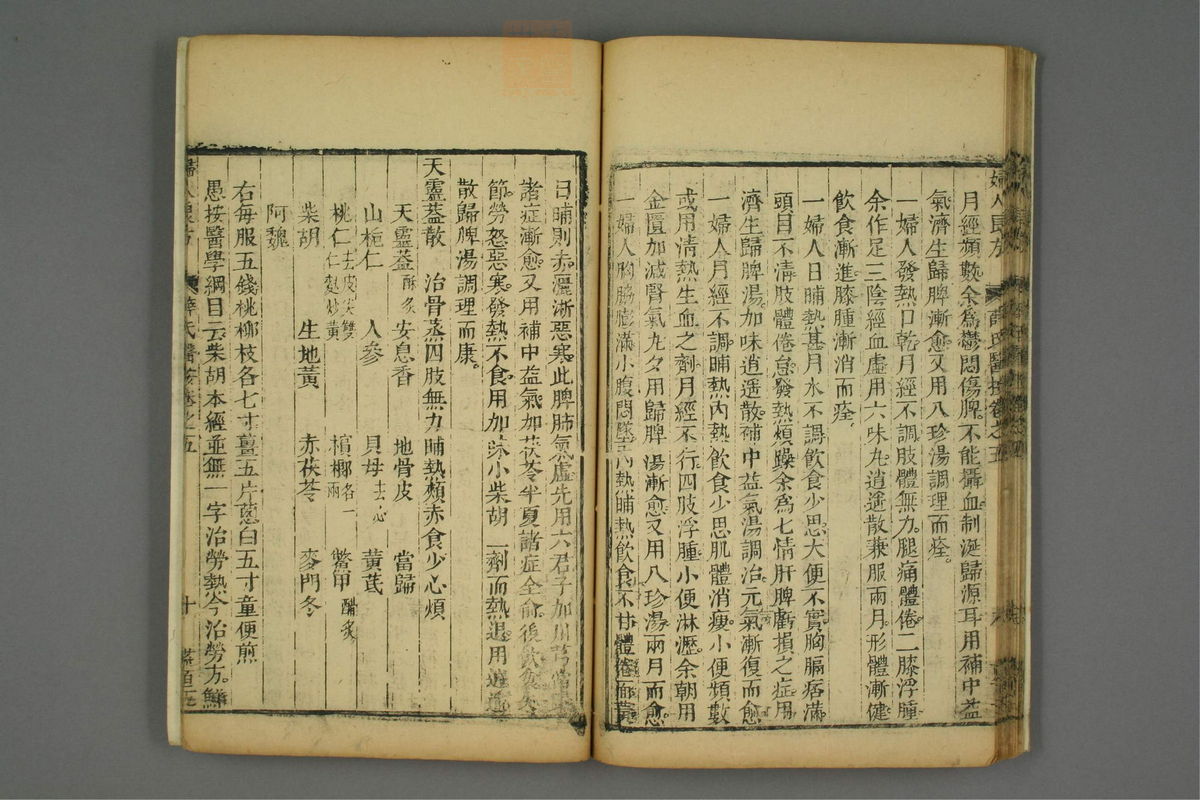 婦人良方 薛氏醫按卷之五
月經頻數余爲鬱悶傷脾不能攝血制涎歸源耳用補中益
氣濟生歸脾漸愈又用八珍湯調理而痊
一婦人發熱口乾月經不調肢體無力腿痛體倦二膝浮腫
余作足三陰經血虛用六味丸逍遥散兼服兩月形體漸健
飲食漸進膝腫漸消而痊
一婦人日晡熱甚月水不調飲食少思大便不實胸膈痞滿
頭目不清肢體倦怠發熱煩躁余爲七情肝脾虧損之症用
濟生歸脾湯加味逍遥散補中益氣湯調治元氣漸復而愈
一婦人月經不調晡熱內熱飲食少思肌體消瘦小便頻數
或用清熱生血之劑月經不行四肢浮腫小便淋瀝余朝用
金匱加減腎氣丸夕用歸脾湯漸愈又用八珍湯兩月而愈
一婦人胸脇膨滿小腹悶墜內熱晡熱飲食不甘體倦面黃
日晡則赤灑淅惡寒此脾肺氣虛先用六君子加川芎當歸
諸症漸愈又用補中益氣加茯苓半夏諸症全愈後飲食失
節勞怒惡寒發熱不食用加味小柴胡一劑而熱退用逍遥
散歸脾湯調理而康
天靈葢散 治骨蒸四肢無力晡熱頰赤食少心煩
天靈葢酥炙 安息香 地骨皮 當歸
山梔仁 人參 貝母去心 黃芪
桃仁去皮尖雙仁麩炒黃 檳榔各一兩 鱉甲醋炙
柴胡 生地黃 赤茯苓 麥門冬
阿魏
右每服五錢桃柳枝各七寸薑五片葱白五寸童便煎
愚按醫學綱目云柴胡本經並無一字治勞熱今治勞方鮮
婦人良方 薛氏醫按卷之五 十